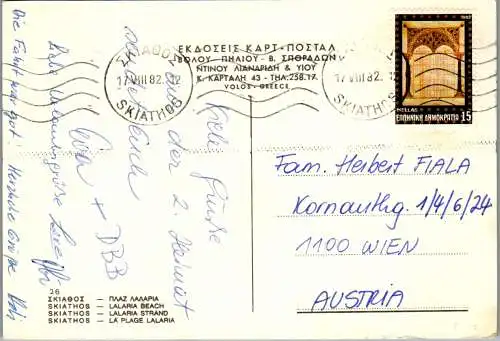 ΕΚΔΟΣΕΙΣ ΚΑΡΤ-ΠΟΣΤΑΛ
ΒΟΛΟΥ - ΠΗΛΙΟΥ - Β. ΣΠΟΡΑΔΩΝ
ΝΤΙΝΟΥ ΛΙΑΝΑΡΙΔΗ & ΥΙΟΥ
Κ. ΚΑΡΤΑΛΗ 43 - ΤΗΛ. 258.17
VOLOS - GREECE
ΣΚΙΑΘΟΣ
17 VIII 82. 12
SKIATHOS
17 VIII 82. 12
SKIATHOS
1982
HELLAS
ΕΛΛΗΝΙΚΗ ΔΗΜΟΚΡΑΤΙΑ 15
Viele Grüße
aus der 2. Heimat
sendet Euch
+ DBB
Liebe Urlaubsgrüße
Die Fahrt war gut! Herzliche Grüße
Fam. Herbert FIALA
Kornauthg. 1/4/6/24
1100 WIEN
AUSTRIA
26
ΣΚΙΑΘΟΣ — ΠΛΑΖ ΛΑΛΑΡΙΑ
SKIATHOS — LALARIA BEACH
SKIATHOS — LALARIA STRAND
SKIATHOS — LA PLAGE LALARIA